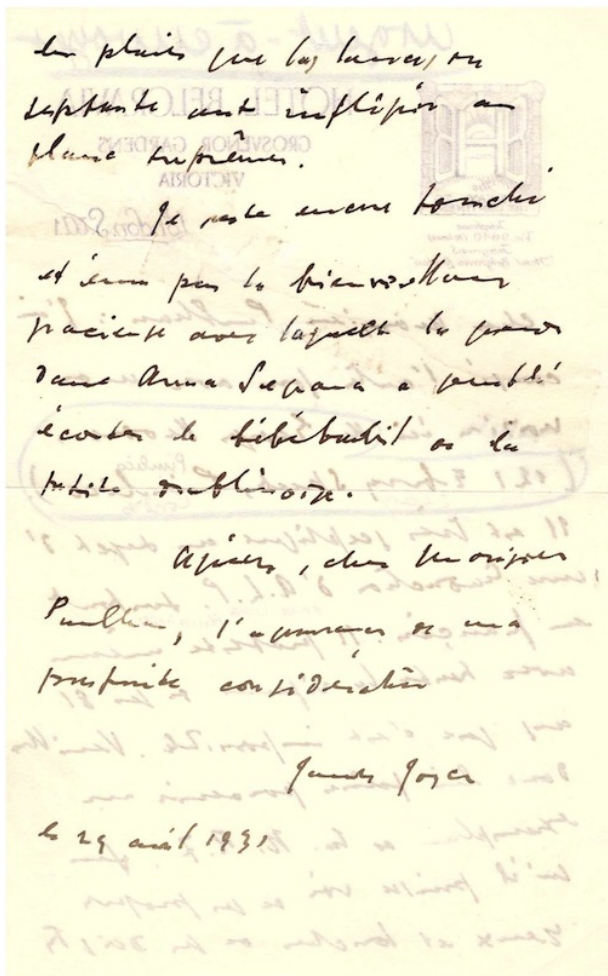 les plaies que les lances en
septante ont infligées au
flanc suprême.
Je reste encore touché
et ému par la bienveillance
gracieuse avec laquelle la grande
dame Anna Sequana a semblé
écouter le bébébabil de la
petite dublinoise.
Agréez, cher Monsieur
Paulhan, l'assurance de ma
parfaite considération
James Joyce
le 29 avril 1931